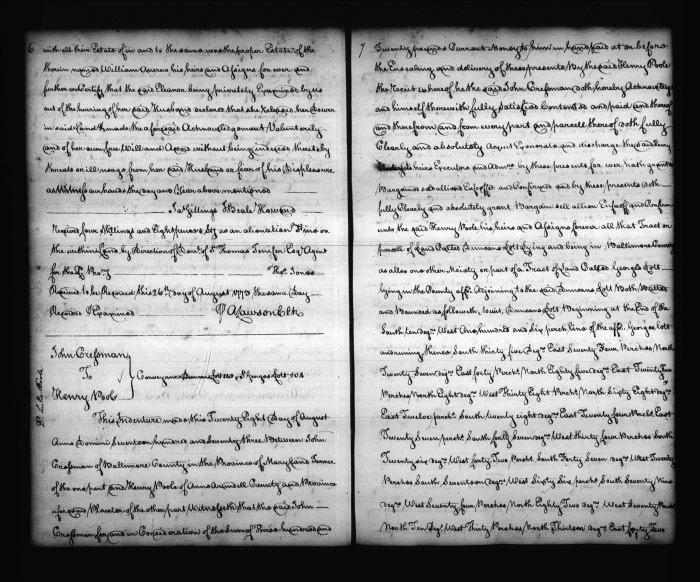 6
with all their Estate of in and to the same was the proper Estate of the
therein named William his heirs and Assigns for ever and
further Certify that the said Eleanor being privately Examined by us
out of the hearing of her said Husband declared that she Released her Dower
in said Land & made the aforesaid Acknowledgement Voluntarily
and of her own free Will and Accord without being induced thereto by
threats or ill usage from her said Husband or fear of his Displeasure
as Witness our hands the day and Year above mentioned
Jas Gittings T Beale Howard
Received four Shillings and Eight pence Stg as an alienation Fine on
the within Land by direction of Danl of St Thomas Jenifer Esqr Agent
for the Ld Propy Thos Jones
Received to be Recorded this 26th day of August 1773 the same Day
Recorded & Examined A Lawson Clk
John Cressman
To
Henry Pool
Conveyance Duncans Lott &
This Indenture made this Twenty Eight Day of August
Anno Domini Seventeen hundred and Seventy three Between John
Crossman of Baltimore County in the Province of Maryland Farmer
of the one part and Henry Poole of Ann Arundell County and Province
aforesaid Planter of the other part Witnesseth that the said John
Crossman for and in Consideration of the Sum of Three hundred and
7
Twenty pounds Current Money to him in hand paid at or before
the Ensealing and delivery of these presents by the said Henry Poole
the Receit whereof he the said John Cressman doth hereby Acknowledge
and himself therewith fully Satisfied Contented and paid and thereof
and therefrom and from every part and parcell thereof doth fully
Clearly and absolutely Acquit Exonerate and discharge the said Henry
his heirs Executors and Admrs by these presents for ever hath granted
Bargained Sold aliend Enfeoffed and Confirmed and by these presents doth
fully Clearly and absolutely grant Bargain sell alien Enfeoff and Confirm
unto the said Henry Poole his heirs and Assigns forever all that Tract or
parcell of Land Called Duncans Lott lying and being in Baltimore County
as also one other Moiety or part of a Tract of Land Called Georges Lott
lying in the County affd. Adjoining to the said Duncans Lott Both Butted
and Bounded as followeth, Vizt, Duncans Lott Beginning at the End of the
South ten degrs West One hundred and Six perch line of the affd. Georges Lott
and runing thence South thirty five degs East Seventy Four Perches North
Twenty Seven degs East forty Perches North Eighty degs East Twenty Four
Perches North Eight degs West Thirty Eight Perches North Sixty Eight degs
East Twelve perchs South twenty eight degs East Twenty four Perches East
Twenty Seven perches South forty Seven degs West thirty four Perches South
Twenty six degs West forty Two Perchs South Forty Seven degs West Twenty
Perches South Seventeen degs West Sixty Six perchs South Seventy Nine
degs West Seventy four Perches North Eighty Two degs West Seventy Perches
North Ten degs West Thirty Perches North Thirteen degs East forty Two